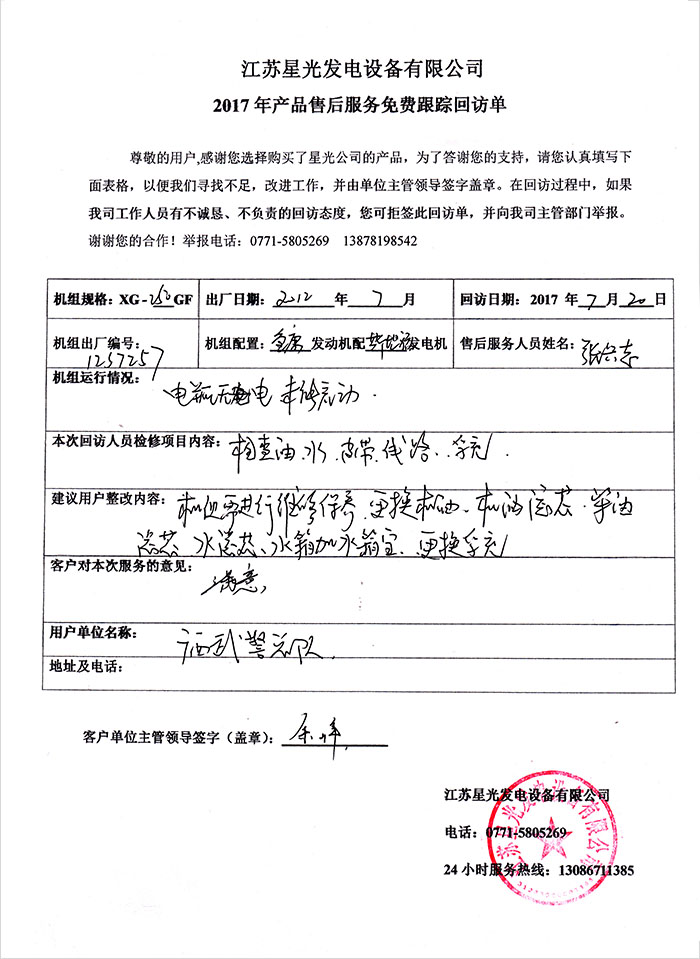 江苏星光发电设备有限公司
2017 年产品售后服务免费跟踪回访单
尊敬的用户,感谢您选择购买了星光公司的产品，为了答谢您的支持，请您认真填写下
面表格，以便我们寻找不足，改进工作，并由单位主管领导签字盖章。在回访过程中，如果
我司工作人员有不诚恳、不负责的回访态度，您可拒签此回访单，并向我司主管部门举报。
谢谢您的合作！举报电话：0771-5805269 13878198542
机组规格：XG-250GF 出厂日期：2012 年 7 月 回访日期：2017 年 7 月 20 日
机组出厂编号： 机组配置： 发动机配 发电机 售后服务人员姓名：
1257257
机组运行情况：
电瓶无电 未能启动.
本次回访人员检修项目内容：检查油、水、皮带、线路、浮充.
建议用户整改内容：机组需进行维修保养、更换机油、机油滤芯、柴油
滤芯、水滤芯、水箱加水箱宝、更换浮充
客户对本次服务的意见：
满意
用户单位名称：
广西武警总队
地址及电话：
客户单位主管领导签字（盖章）：
江苏星光发电设备有限公司
电话：0771-5805269
24 小时服务热线：13086711385
江苏星光发电设备有限公司